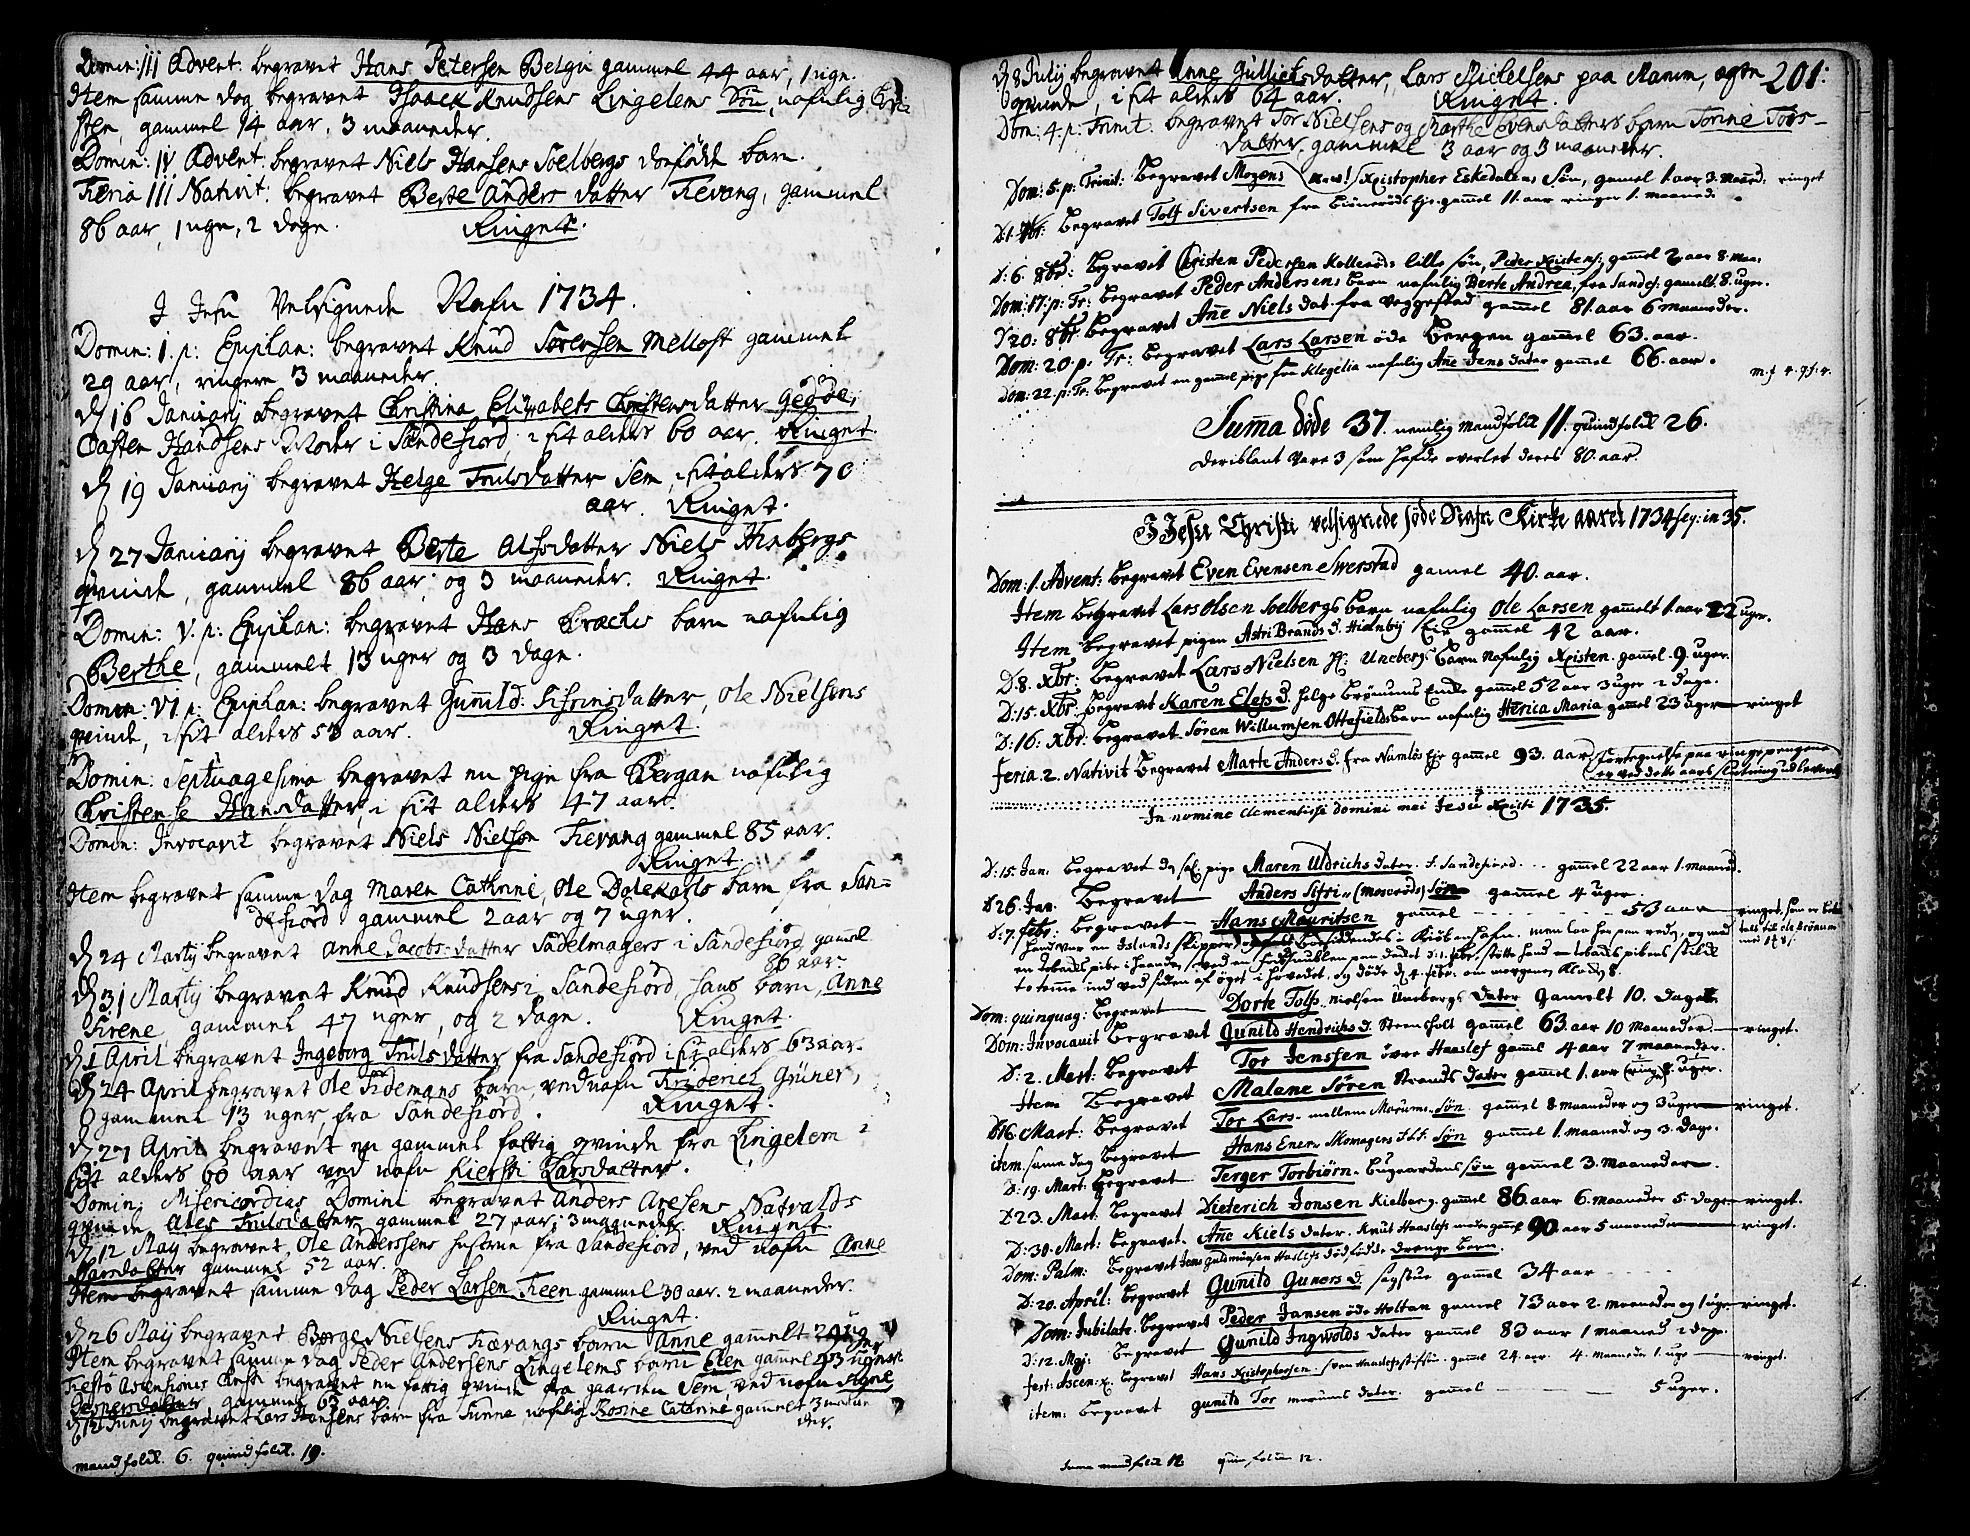 Domin: III Advent: begravet Hans Petersen Belgu gammel 44 aar, 1 uge.
Item samme dag begravet Isaack Knudsens Lingelems Søn, nafnlig
sten, gammel 14 aar, 3 maaneder.
Domin: IV Advent: begravet Niels Hansens Soelbergs dødfødt barn.
Feria III Nativit: begravet Berte Anders datter Fievang, gammel
86 aar, 1 uge, 2 dage. Ringet.
I Jesu Velsignede Nafn 1734.
Domin: 1. p: Epiphan: begravet Knud Sørensen Mellost gammel
29 aar, ringere 3 maaneder.
d 16 Januarij begravet Christina Elizabets Christensdatter
Casten Handsens Moder i Sandefiord, i sit alders 60 aar. Ringet.
d 19 Januarij begravet Helge Trulsdatter Sem, i sit alders 70
aar. Ringet.
d 27 Januarij begravet Berte Olufsdatter Niels Hinbergs
qvinde, gammel 86 aar, og 3 maaneder. Ringet.
Domin: V. p: Epiphan: begravet Hans Brachs barn nafnlig
Berthe, gammelt 13 uger og 3 dage.
Domin: VI p: Epiphan: begravet Gunild datter, Ole Nielsens
qvinde, i sit alders 58 aar. Ringet.
Domin: Septuagesima begravet en pige fra Bergan nafnlig
Christense Hansdatter, i sit alders 47 aar.
Domin: Invocavit begravet Niels Nielsøn Fievang gammel 85 aar.
Ringet.
Item begravet samme dag Maren Cathrine, Ole barn fra San=
defiord gammel 2 aar og 7 uger.
d 24 Martij begravet Anne Jacobs-datter Sadelmagers i Sandefiord gammel
86 aar.
d 31 Martij begravet Knud Knudsens i Sandefiord hans barn, Anne
Sirene, gammel 47 uger, og 2 dage. Ringet.
d 1 April begravet Ingeborg Trulsdatter fra Sandefiord i sit alders 63 aar.
d 24 April begravet Ole Tidemans barn, ved nafn Friderich Grüner,
gammel 13 uger, fra Sandefiord. Ringet.
d 27 April begravet en gammel fattig qvinde fra Lingelem i
sit alders 60 aar ved nafn Kiersti Larsdatter.
Domin: Misericordias Domini begravet Anders Aresens Natvalds
qvinde, Ales Trulsdatter gammel 27 aar, 3 maaneder. Ringet.
d 12 Maij begravet, Ole Anderssens hustrue fra Sandefiord, ved nafn Anne
Hansdatter gammel 52 aar.
Item begravet samme dag Peder Larsen Fieen gammel 30 aar. 2 maaneder.
Ringet.
d 26 Maij begravet Børge Nielsens Fievangs barn Anne gammelt
Item begravet samme dag Peder Andersens Lingelems barn Elen gammel
Festo Ascensionis Christi begravet en fattig qvinde fra gaarden Sem, ved nafn
gammel 63 aar.
d 12 Junij begravet Lars Hansens barn fra nafnlig Rosine Cathrine gammelt 3 maane
der.
mandfolck. 6. quindfolck. 19.
201:
d 8 Julij begravet Anne Gullichsdatter, Lars Michelsens paa Ramm, ægte
qvinde, i sit alders 64 aar. Ringet.
Dom: 4. p: Trinit: begravet Tor Nielsens og Marthe Evensdatters barn Torine Tors-
datter, gammel 3 aar og 3 maaneder.
Dom: 5. p: Trinit: Begravet Mogens Xristopher Eskedalens Søn, gamel 1 aar 3. Maaned: ringet
D: 1. 7br: Begravet Tolf Sivertsen fra gamel 11. aar ringer 1. maaned.
D: 6. 8br: Begravet Christen Pedersen Kollerøds lille søn, Peder Xristens: gamel 2 aar 8. maa.
Dom: 17: p: Tr: begravet Peder Andersens barn nafnlig Berte Andrea, fra Sandef: gamelt 8. uger.
D 20: 8br Begravet Ane Niels dat. fra Veggestad gamel 81. aar 6 maaneder.
Dom: 20. p: Tr: Begravet Lars Larsen øde Bergen gamel 63. aar.
Dom: 22. p: Tr: Begravet en gamel pige fra Klegelia nafnlig Ane Jens dater gamel 66. aar.
Suma døde 37. nemlig mandfolk 11. quindfolk 26.
Deriblant vare 3 som hafde overlet deres 80. aar.
I Jesu Christi velsignede søde Nafn Kirke aaret 1734 seq: in 35.
Dom: 1. Advent: Begravet Even Evensen Swerstad gamel 40. aar.
Item begravet Lars Olsen Soelbergs Barn nafnlig Ole Larsen gamelt 1. aar 22 uger.
Item Begravet pigen Astri Brands d. Hiemby Eie gamel 42 aar.
D. 8. xbr: Begravet Lars Nielsen Unebergs Barn nafnlig Xristen. gamel. 9. uger.
D: 15. Xbr: begravet Karen Elefs d. Helge Brønums Enke gamel 52 aar 3 uger 2 dage.
D: 16. Xbr: Begravet Søren Willumsen Ottesields barn nafnlig Herica Maria gamel 23 uger ringet
Feria. 2. Nativit Begravet Marte Anders d. fra Numløs Eje gamel 93. aar (fortegnelse paa ringepengene
er ved dette aars slutning udleveret)
In nomine clementisse domini mei Jesu Xristi 1735.
D: 15. Jan: Begravet pige Maren Uldrichs dater. f. Sandefiord. gamel 22 aar 1. maaned.
D 26. Jan. Begravet Anders Sifri (Moserøds) Søn gamel 4 uger.
D: 7. febr: begravet Hans Mauritsen gamel 53 aar ringet, som er bet
Dom: quinquag: Begravet Dorte Tolfs. Nielsen Unebergs dater Gamelt 10. dage.
Dom: Invocavit Begravet Gunild Hendrichs d. Steensholt gamel 63. aar 10 maaneder. ringet.
D: 2. Mart: Begravet Tor Jenssen øvre Haaslef gamel 4 aar 7 maaneder.
Item Begravet Malene Søren Strands dater gamel 1. aar (ring) 8. uger.
D 16. Mart: Begravet Tor Lars. mellem Morums. Søn gamel 8. maaneder og 3 uger ringet.
item same dag Begravet Hans Ener. Skomagers Søn gamel 1. maaned. og 3. dage.
D: 19. Mart: Begravet Terger Torbiørn. Bugaardens søn gamel 3. Maaneder.
D 23. Mart. Begravet Dieterich Jonsen Kielberg. gamel 86. aar 6. maaneder 5. dage ringet.
D: 30. Mart: begravet. Ane Kiels dater. Knut Haaslefs moder gamel 90 aar 5 maaneder ringet.
Dom: Palm: Begravet Jens Guldmunsen Haslefs dødfødde drenge barn.
D: 20. April: Begravet Gunild Guners d. søystue gamel 34 aar
Dom: Jubilate. Begravet Peder Jansen øde Holtan gamel 73 aar 2. maaneder og 1 uge ringet.
D: 12. Maj: Begravet Gunild Ingwolds dater gamel 83 aar 1 maaned 2 dage.
fest: Ascen: X. Begravet Hans Xristophersen. gamel 24. aar. 4. maaneder 1. uge ringet.
item: Begravet gunild Tor morums dater. gamel 5 uger.
Suma mandfolck 12 quinfolcken 12.